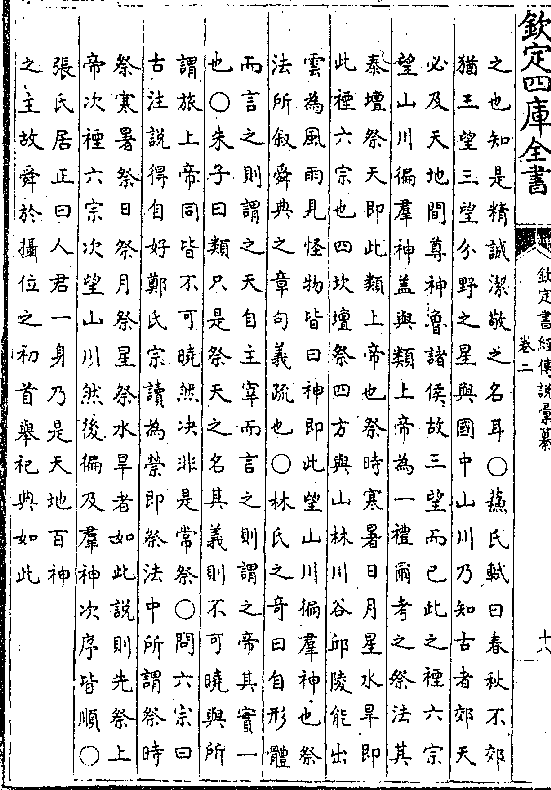 欽定四庫全書
欽定書經傳說彙纂
卷二
十八
之也知是精誠潔敬之名耳○蘇氏軾曰春秋不郊
猶三望三望分野之星與國中山川乃知古者郊天
必及天地間尊神魯諸侯故三望而已此之禋六宗
望山川徧羣神盖與類上帝為一禮爾考之祭法其
泰壇祭天即此類上帝也祭時寒暑日月星水旱即
此禋六宗也四坎壇祭四方與山林川谷邱陵能出
雲為風雨見怪物皆曰神即此望山川徧羣神也祭
法所叙舜典之章句義疏也○林氏之奇曰自形體
而言之則謂之天自主宰而言之則謂之帝其實一
也○朱子曰類只是祭天之名其義則不可曉與所
謂旅上帝同皆不可曉然決非是常祭○問六宗曰
古注說得自好鄭氏宗讀為禜即祭法中所謂祭時
祭寒暑祭日祭月祭星祭水旱者如此說則先祭上
帝次禋六宗次望山川然後徧及羣神次序皆順○
張氏居正曰人君一身乃是天地百神
之主故舜於攝位之初首舉祀典如此